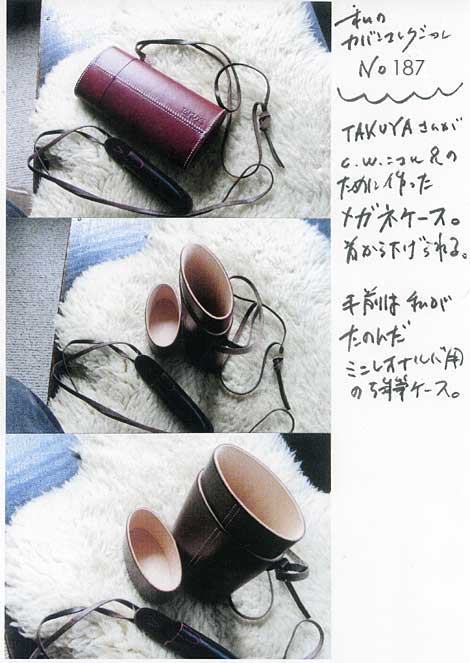 私の
カバンコレクション
No 187
TAKUYAさんが
C.W.ニコル氏の
ために作った
メガネケース。
首から下げられる。
手前は私が
たのんだ
ミニレオナルド用
のケース。